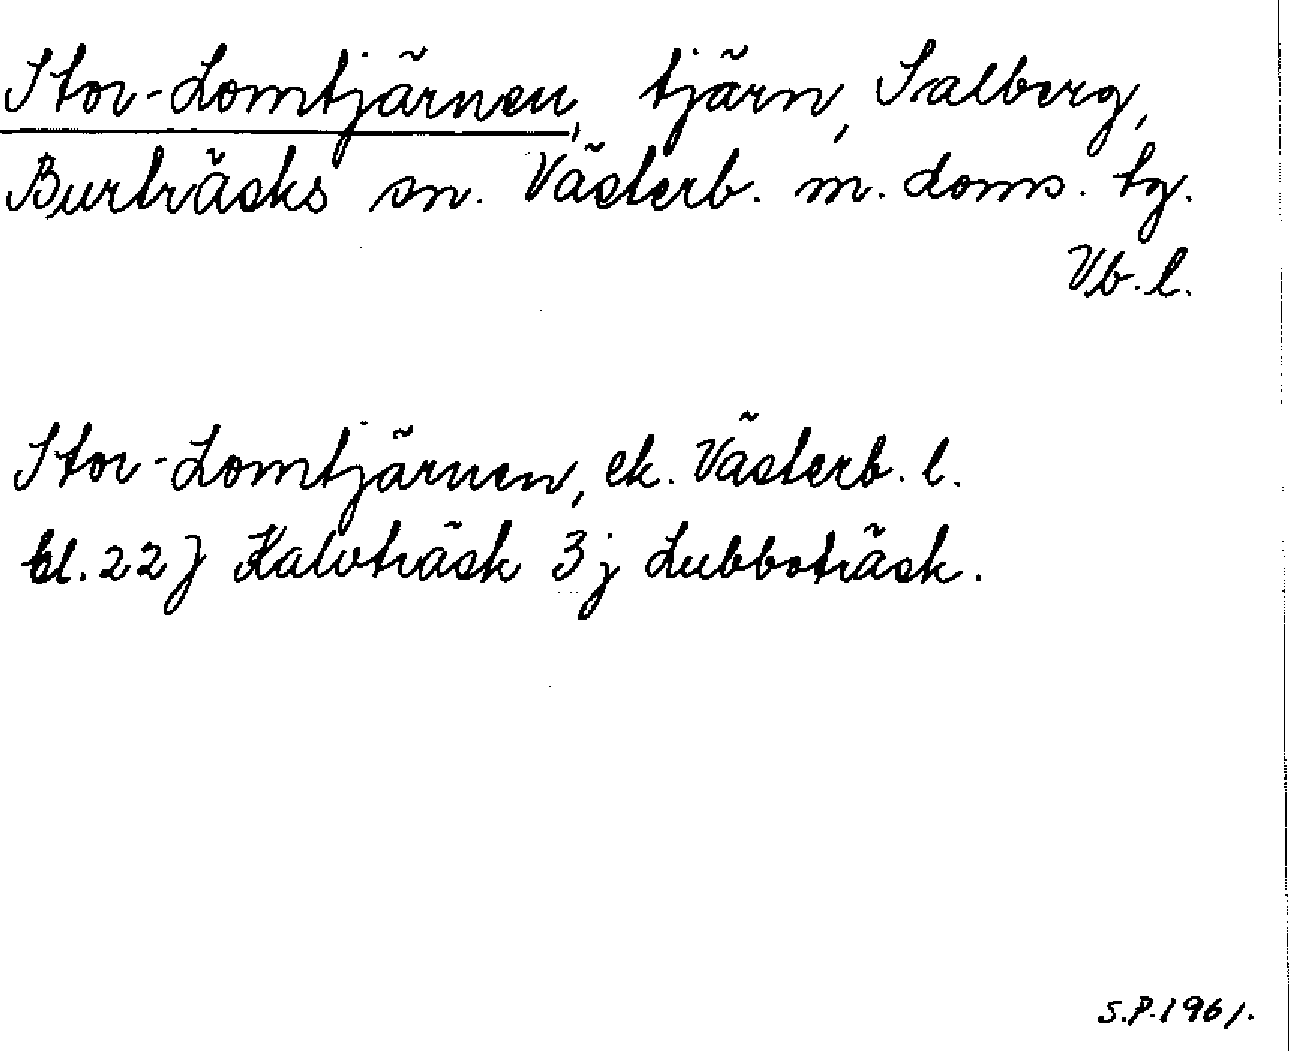 Stor-Lomtjärnen, tjärn, Salberg,
Burträsks sn. Västerb. m. doms. tg.
Vb. l.
Stor-Lomtjärnen, ek. Västerb. l.
bl. 22 J Kalvträsk 3 j Lubboträsk.
S.P. 1961.